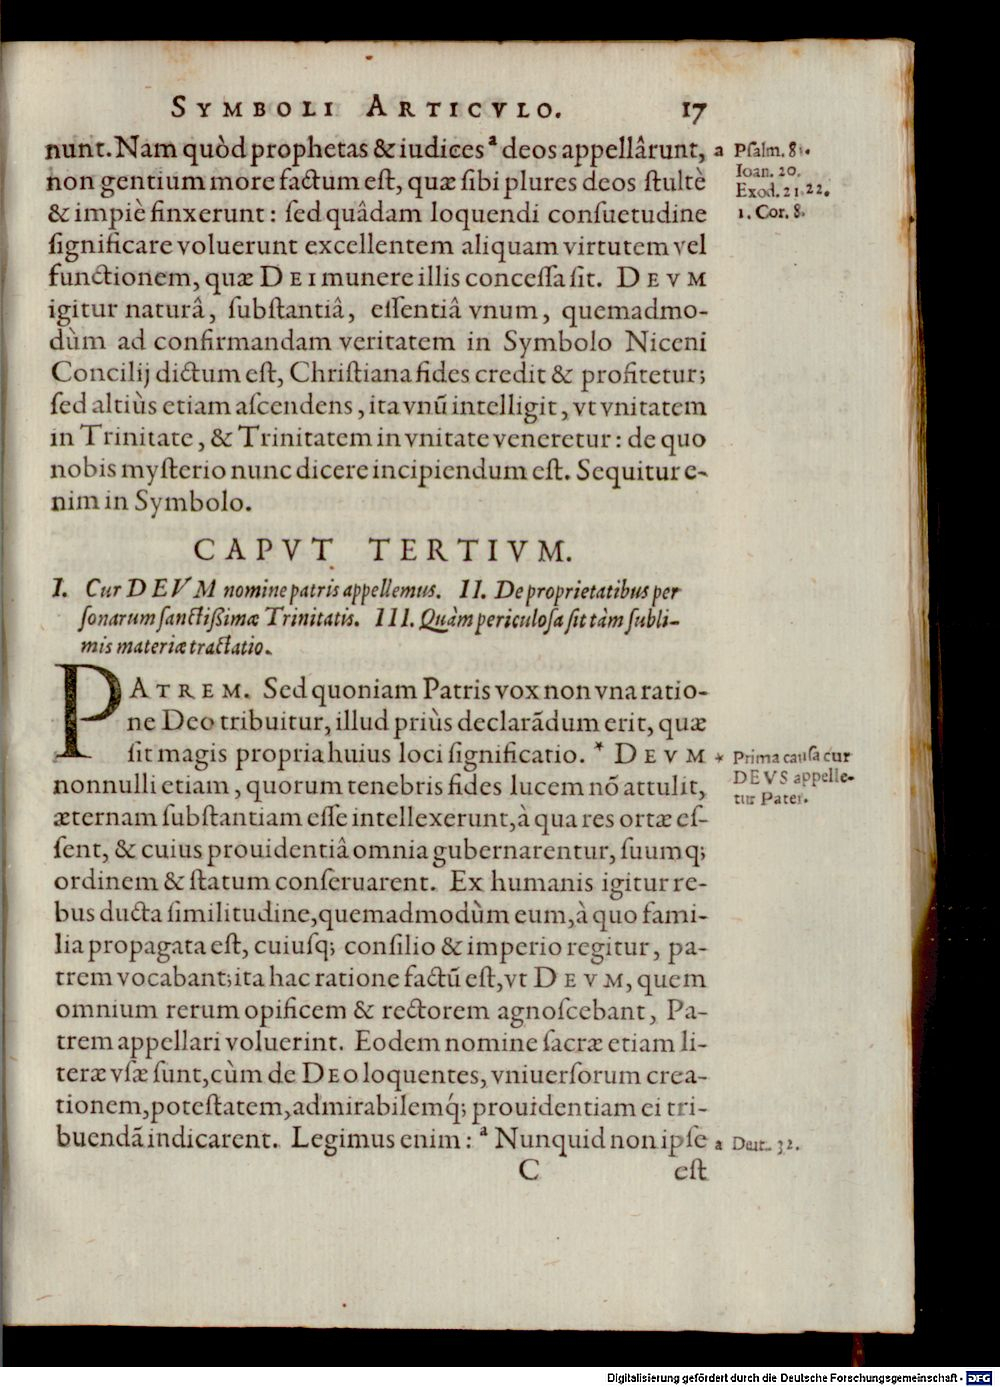 SYMBOLI ARTICVLO. 17
nunt. Nam quòd prophetas & iudices ª deos appellârunt,
non gentium more factum eſt, quæ ſibi plures deos ſtultè
& impiè finxerunt: ſed quâdam loquendi conſuetudine
ſignificare voluerunt excellentem aliquam virtutem vel
functionem, quæ DEI munere illis conceſſa ſit. DEVM
igitur naturâ, ſubſtantiâ, eſſentiâ vnum, quemadmo-
dùm ad confirmandam veritatem in Symbolo Niceni
Concilij dictum eſt, Chriſtiana fides credit & profitetur;
ſed altiùs etiam aſcendens, ita vnũ intelligit, vt vnitatem
in Trinitate, & Trinitatem in vnitate veneretur: de quo
nobis myſterio nunc dicere incipiendum eſt. Sequitur e-
nim in Symbolo.
a Pſalm. 81.
Ioan. 20.
Exod. 21.22.
1. Cor. 8.
CAPVT TERTIVM.
I. Cur DEVM nomine patris appellemus. II. De proprietatibus per
ſonarum ſanctißimæ Trinitatis. III. Quàm periculoſa ſit tàm ſubli-
mis materiæ tractatio.
PATREM. Sed quoniam Patris vox non vna ratio-
ne Deo tribuitur, illud priùs declarãdum erit, quæ
ſit magis propria huius loci ſignificatio. * DEVM
nonnulli etiam, quorum tenebris fides lucem nõ attulit,
æternam ſubſtantiam eſſe intellexerunt, à qua res ortæ eſ-
ſent, & cuius prouidentiâ omnia gubernarentur, ſuumq;
ordinem & ſtatum conſeruarent. Ex humanis igitur re-
bus ducta ſimilitudine, quemadmodùm eum, à quo fami-
lia propagata eſt, cuiuſq; conſilio & imperio regitur, pa-
trem vocabant; ita hac ratione factũ eſt, vt DEVM, quem
omnium rerum opificem & rectorem agnoſcebant, Pa-
trem appellari voluerint. Eodem nomine ſacræ etiam li-
teræ vſæ ſunt, cùm de DEO loquentes, vniuerſorum crea-
tionem, poteſtatem, admirabilemq́; prouidentiam ei tri-
buendã indicarent. Legimus enim: ª Nunquid non ipſe
* Prima cauſa cur
DEVS appelle-
tur Pater.
a Deut. 32.
C eſt
Digitalisierung gefördert durch die Deutsche Forschungsgemeinschaft - DFG